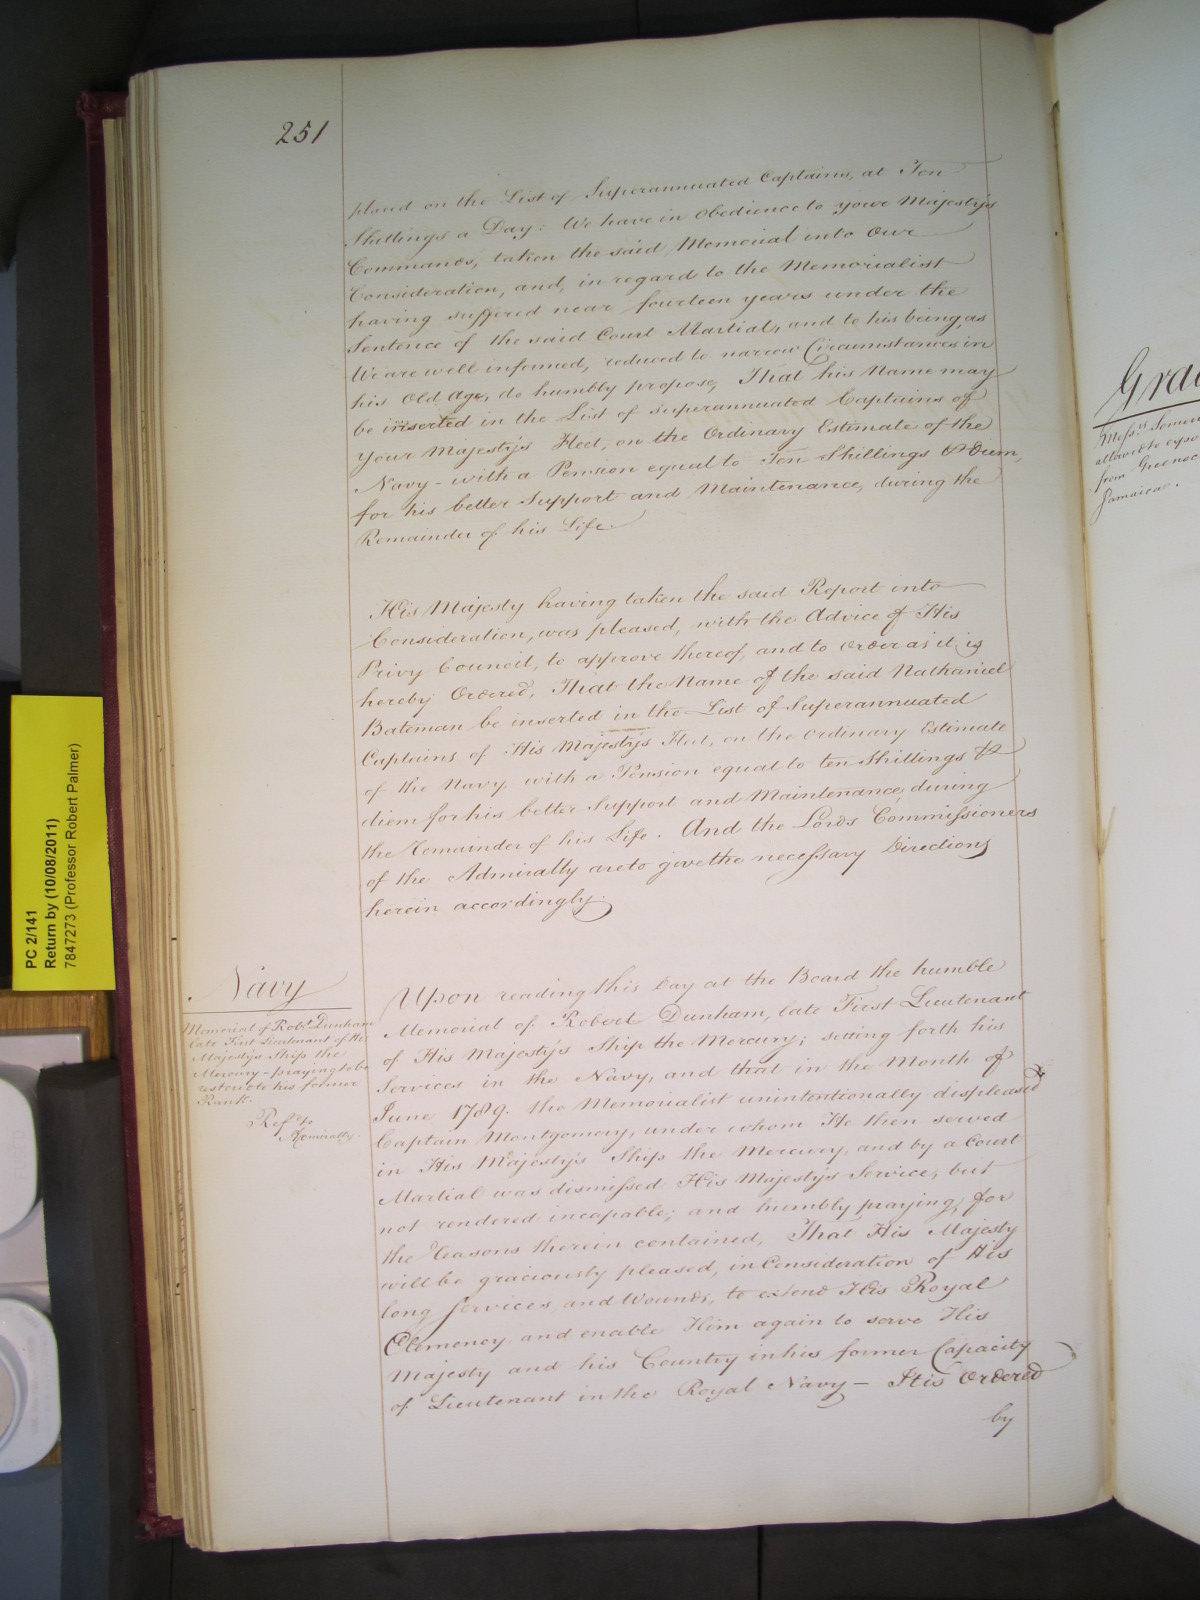 251
placed on the List of Superannuated Captains, at Ten
Shillings a Day: We have in obedience to your Majesty's
Commands, taken the said Memorial into Our
Consideration, and, in regard to the Memorialist
having suffered near fourteen years under the
Sentence of the said Court Martial, and to his being, as
We are well informed, reduced to narrow Circumstances in
his old Age, do humbly propose, That his Name may
be inserted in the List of Superannuated Captains of
your Majesty's Fleet, on the Ordinary Estimate of the
Navy - with a Pension equal to Ten Shillings ⅌ Diem,
for his better Support and Maintenance, during the
Remainder of his Life.
His Majesty having taken the said Report into
Consideration, was pleased, with the Advice of His
Privy Council, to approve thereof, and to order as it is
hereby Ordered, That the Name of the said Nathaniel
Bateman be inserted in the List of Superannuated
Captains of His Majesty's Fleet, on the Ordinary Estimate
of the Navy, with a Pension equal to ten Shillings ⅌
diem for his better Support and Maintenance, during
the Remainder of his Life. And the Lords Commissioners
of the Admiralty are to give the necessary Directions
herein accordingly.
Navy
Memorial of Robt. Dunham
late First Lieutenant of His
Majesty's Ship the
Mercury - praying to be
restored to his former
Rank.
Refd. to
Admiralty.
Upon reading this Day at the Board the humble
Memorial of Robert Dunham, late First Lieutenant
of His Majesty's Ship the Mercury; setting forth his
Services in the Navy, and that in the Month of
June 1789. the Memorialist unintentionally displeased
Captain Montgomery, under whom He then served
in His Majesty's Ship the Mercury, and by a Court
Martial was dismissed His Majesty's Service, but
not rendered incapable; and humbly praying, for
the Reasons therein contained, That His Majesty
will be graciously pleased, in Consideration of His
long Services, and Wounds, to extend His Royal
Clemency and enable Him again to serve His
Majesty and his Country in his former Capacity
of Lieutenant in the Royal Navy - It is Ordered
by
PC 2/141
Return by (10/08/2011)
7847273 (Professor Robert Palmer)
Mess.rs
from
Jamaica.